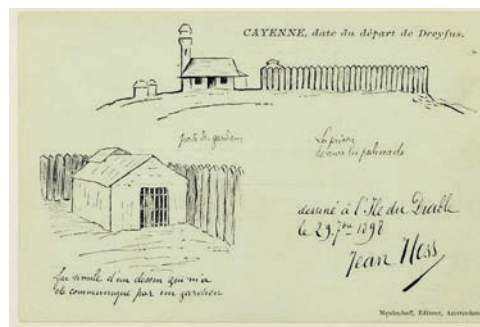 CAYENNE, date du départ de Dreyfus.
poste des gardiens
La prison
derrière les palissades
dessiné à l'Ile du Diable
le 29. 7bre 1898
Jean Hess
Fac simile d'un dessin qui m'a
été communiqué par un gardien
Meulenhoff, Editeur, Amsterdam